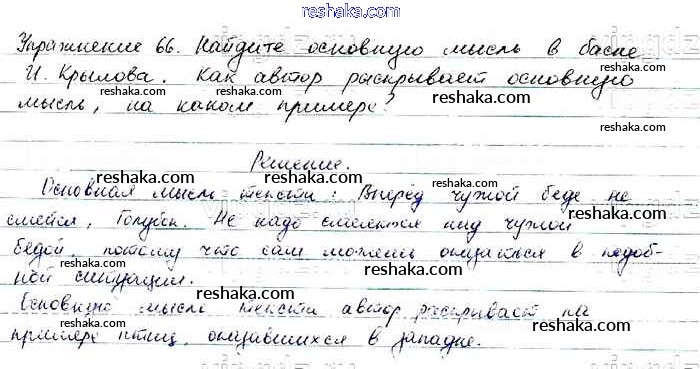 reshaka.com
Упражнение 66. Найдите основную мысль в басне
И. Крылова. Как автор раскрывает основную
reshaka.com reshaka.com
мысль, на каком примере?
reshaka.com reshaka.com
Решение.
reshaka.com reshaka.com
Основная мысль текста: Вперёд чужой беде не
смейся, Голубок. Не надо смеяться над чужой
reshaka.com reshaka.com
бедой, потому что сам можешь оказаться в подоб-
reshaka.com reshaka.com
ной ситуации.
reshaka.com reshaka.com
Основную мысль текста автор раскрывает на
примере птиц, оказавшихся в западне.
reshaka.com reshaka.com